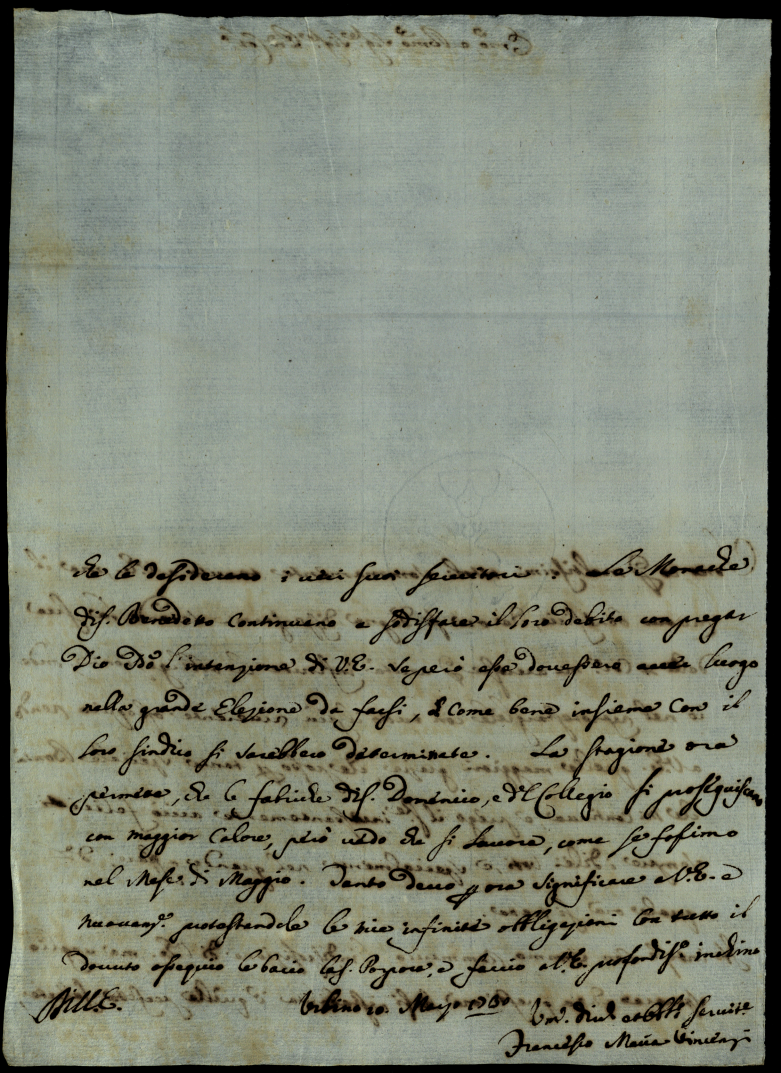 che le desiderano i veri suoi servitori. Le Monache
di S. Benedetto continuano a sodisfare il loro debito con pregar
Dio S'Do l'intenzione di V.E. se però essa dovessero aver luogo
nella grande Elezione da farsi, e come bene insieme con il
loro sindico si sarebbero determinate. La stagione ora
permette, che le fabriche di S. Domenico, e d'l Collegio si proseguiscano
con maggior calore, però vedo che si lavora, come se fosimo
nel Mese di Maggio. Tanto devo p ora significare a V.E. e
nuovam.e protestandole le mie infinite obbligazioni con tutto il
dovuto ossequio le bacio la S. Porpora, e faccio a V.E. profondis.o inchino
Di V.E.
Urbino 10. Marzo 1760
Um. divot. obblig. servit.e
Francesco Maria Vincenzi